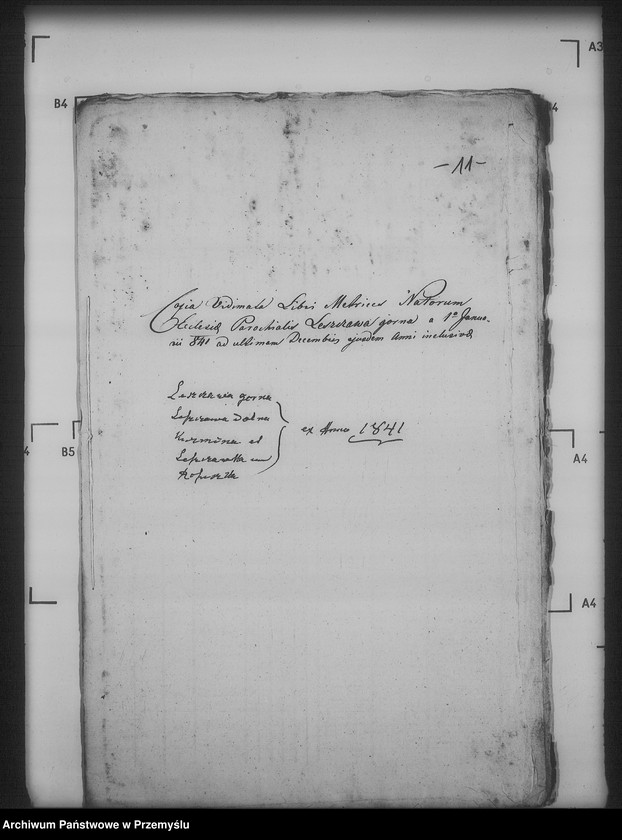 A3
B4
4
-11-
Copia Vidimata Libri Metrices Natorum
Eclesiæ Parochialis Leszczawa gorna a 1ª Janua-
rii 841 ad ultimam Decembris ejusdem Anni inclusive
Leszczawa gorna
Leszczawa Dolna
Kuzmina et
Leszczawka cu
ex Anno 1841
4
B5
A4
A4
Archiwum Państwowe w Przemyślu